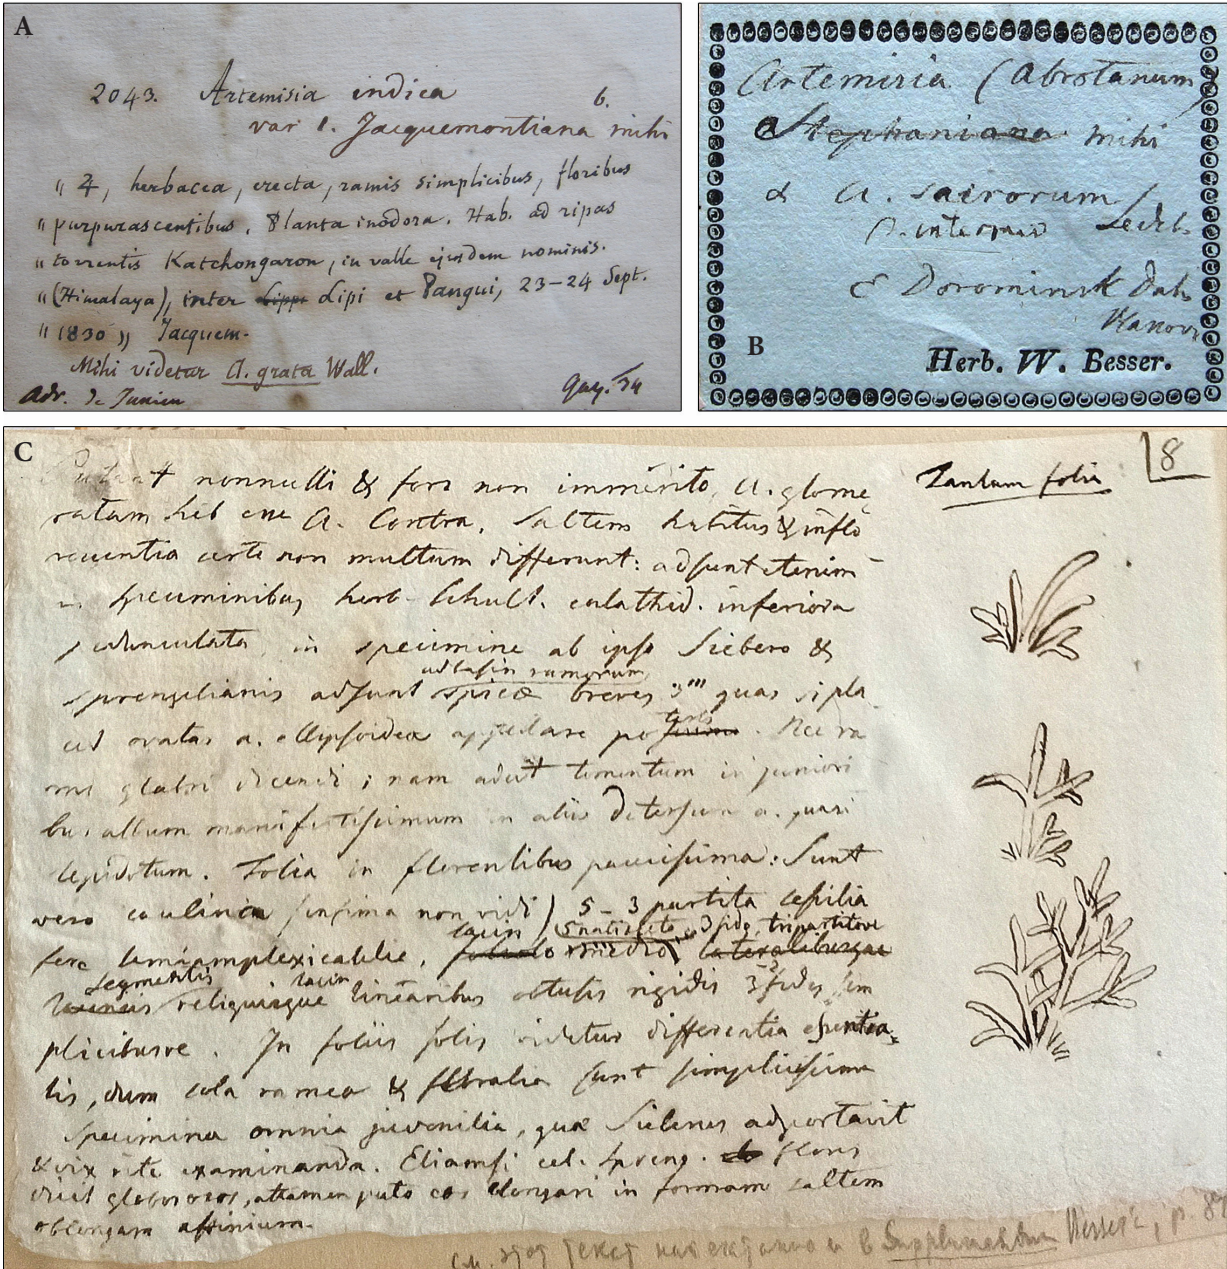 A
2043. Artemisia indica 6.
var 1. Jacquemontiana mihi
" 4, herbacea, erecta, ramis simplicibus, floribus
" purpurascentibus. Planta inodora. Hab. ad ripas
" torrentis Katchongaron, in valle ejusdem nominis.
" (Himalaya), inter Lippi Lipi et Pangui, 23-24 Sept.
" 1830 " Jacquem-
Mihi videtur A. grata Wall.
Adr. de Jussieu Gay. 34
Artemisia (Abrotanum)
Stephaniana mihi
α A. sacrorum
β. intermed Ledeb.
E Dorominsk Dah.
B
Herb. W. Besser.
C
8
Tantum folia
nonnulli & fors non immerito, A. glome
ratam Sieb esse A. Contra. Saltem habitus & inflo
rescentia certe non multum differunt: adsunt etenim
speciminibus herb. Schult. calathid. inferiora
pedunculata, in specimine ab ipso Siebero &
ad basin ramorum
Sprengelianis adsunt spicæ breves 3''' quas si pla
cet ovatas a. ellipsoideas appellare po
mi glabri dicendi; nam adest tomentum in juniori
bus album manifestissimum in aliis detersum a. quasi
lepidotum. Folia in florentibus paucissima: Sunt
vero caulina (infima non vidi) 5-3 partita sessilia
fere semiamplexicaulie, medio lateralibusque
segmentis lacin
reliquisque linearibus obtusis rigidis 3fidis sim
plicibusve. In foliis solis videtur differentia essentia-
lis, dum sola ramea & floralia sunt simplicissima
Specimina omnia juvenilia, quæ Sieberus adportavit
& vix rite examinanda. Etiamsi cel. Spreng. flores
dicit globosos, attamen puto eos elongari in formam saltem
oblongam affinium.
см. этот текст в Supplementum Besser'a, p. 87